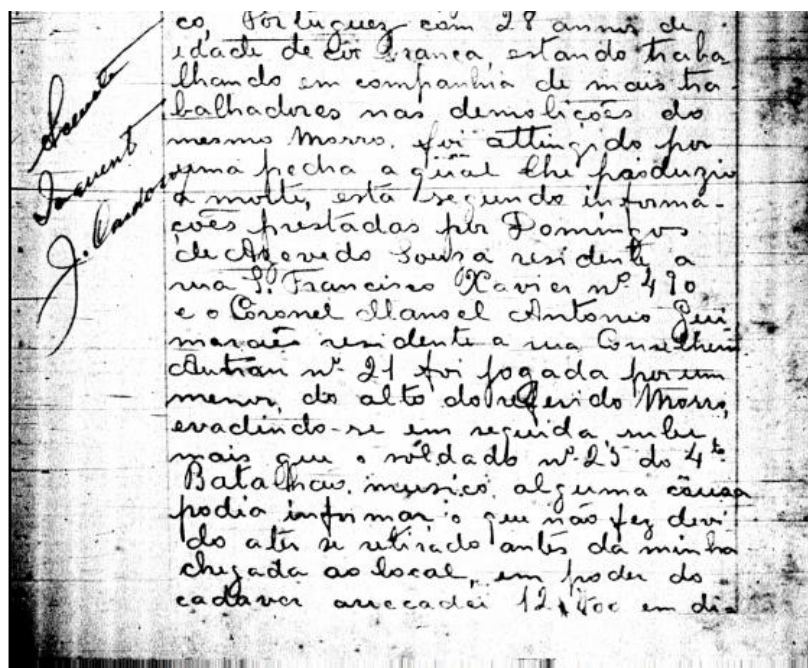 co, Portuguez com 28 annos de
idade de côr branca, estando traba
lhando em companhia de mais tra-
balhadores nas demolições do
mesmo Morro, foi attingido por
uma pedra a qual lhe produzio
a morte, esta segundo informa-
ções prestadas por Domingos
de Azevedo Sousa residente a
rua S. Francisco Xavier nº 490
e o Coronel Manoel Antonio Gui
marães residente a rua Conselheiro
Autran nº 21 foi jogada por um
menor, do alto do referido Morro,
evadindo-se em seguida, sube
mais que o soldado nº 25 do 4º
Batalhão, musico, alguma cousa
podia informar o que não fez devi
do a ter se retirado antes da minha
chegada ao local, em poder do
cadaver arrecadei 12$400 em di
J. Cardoso